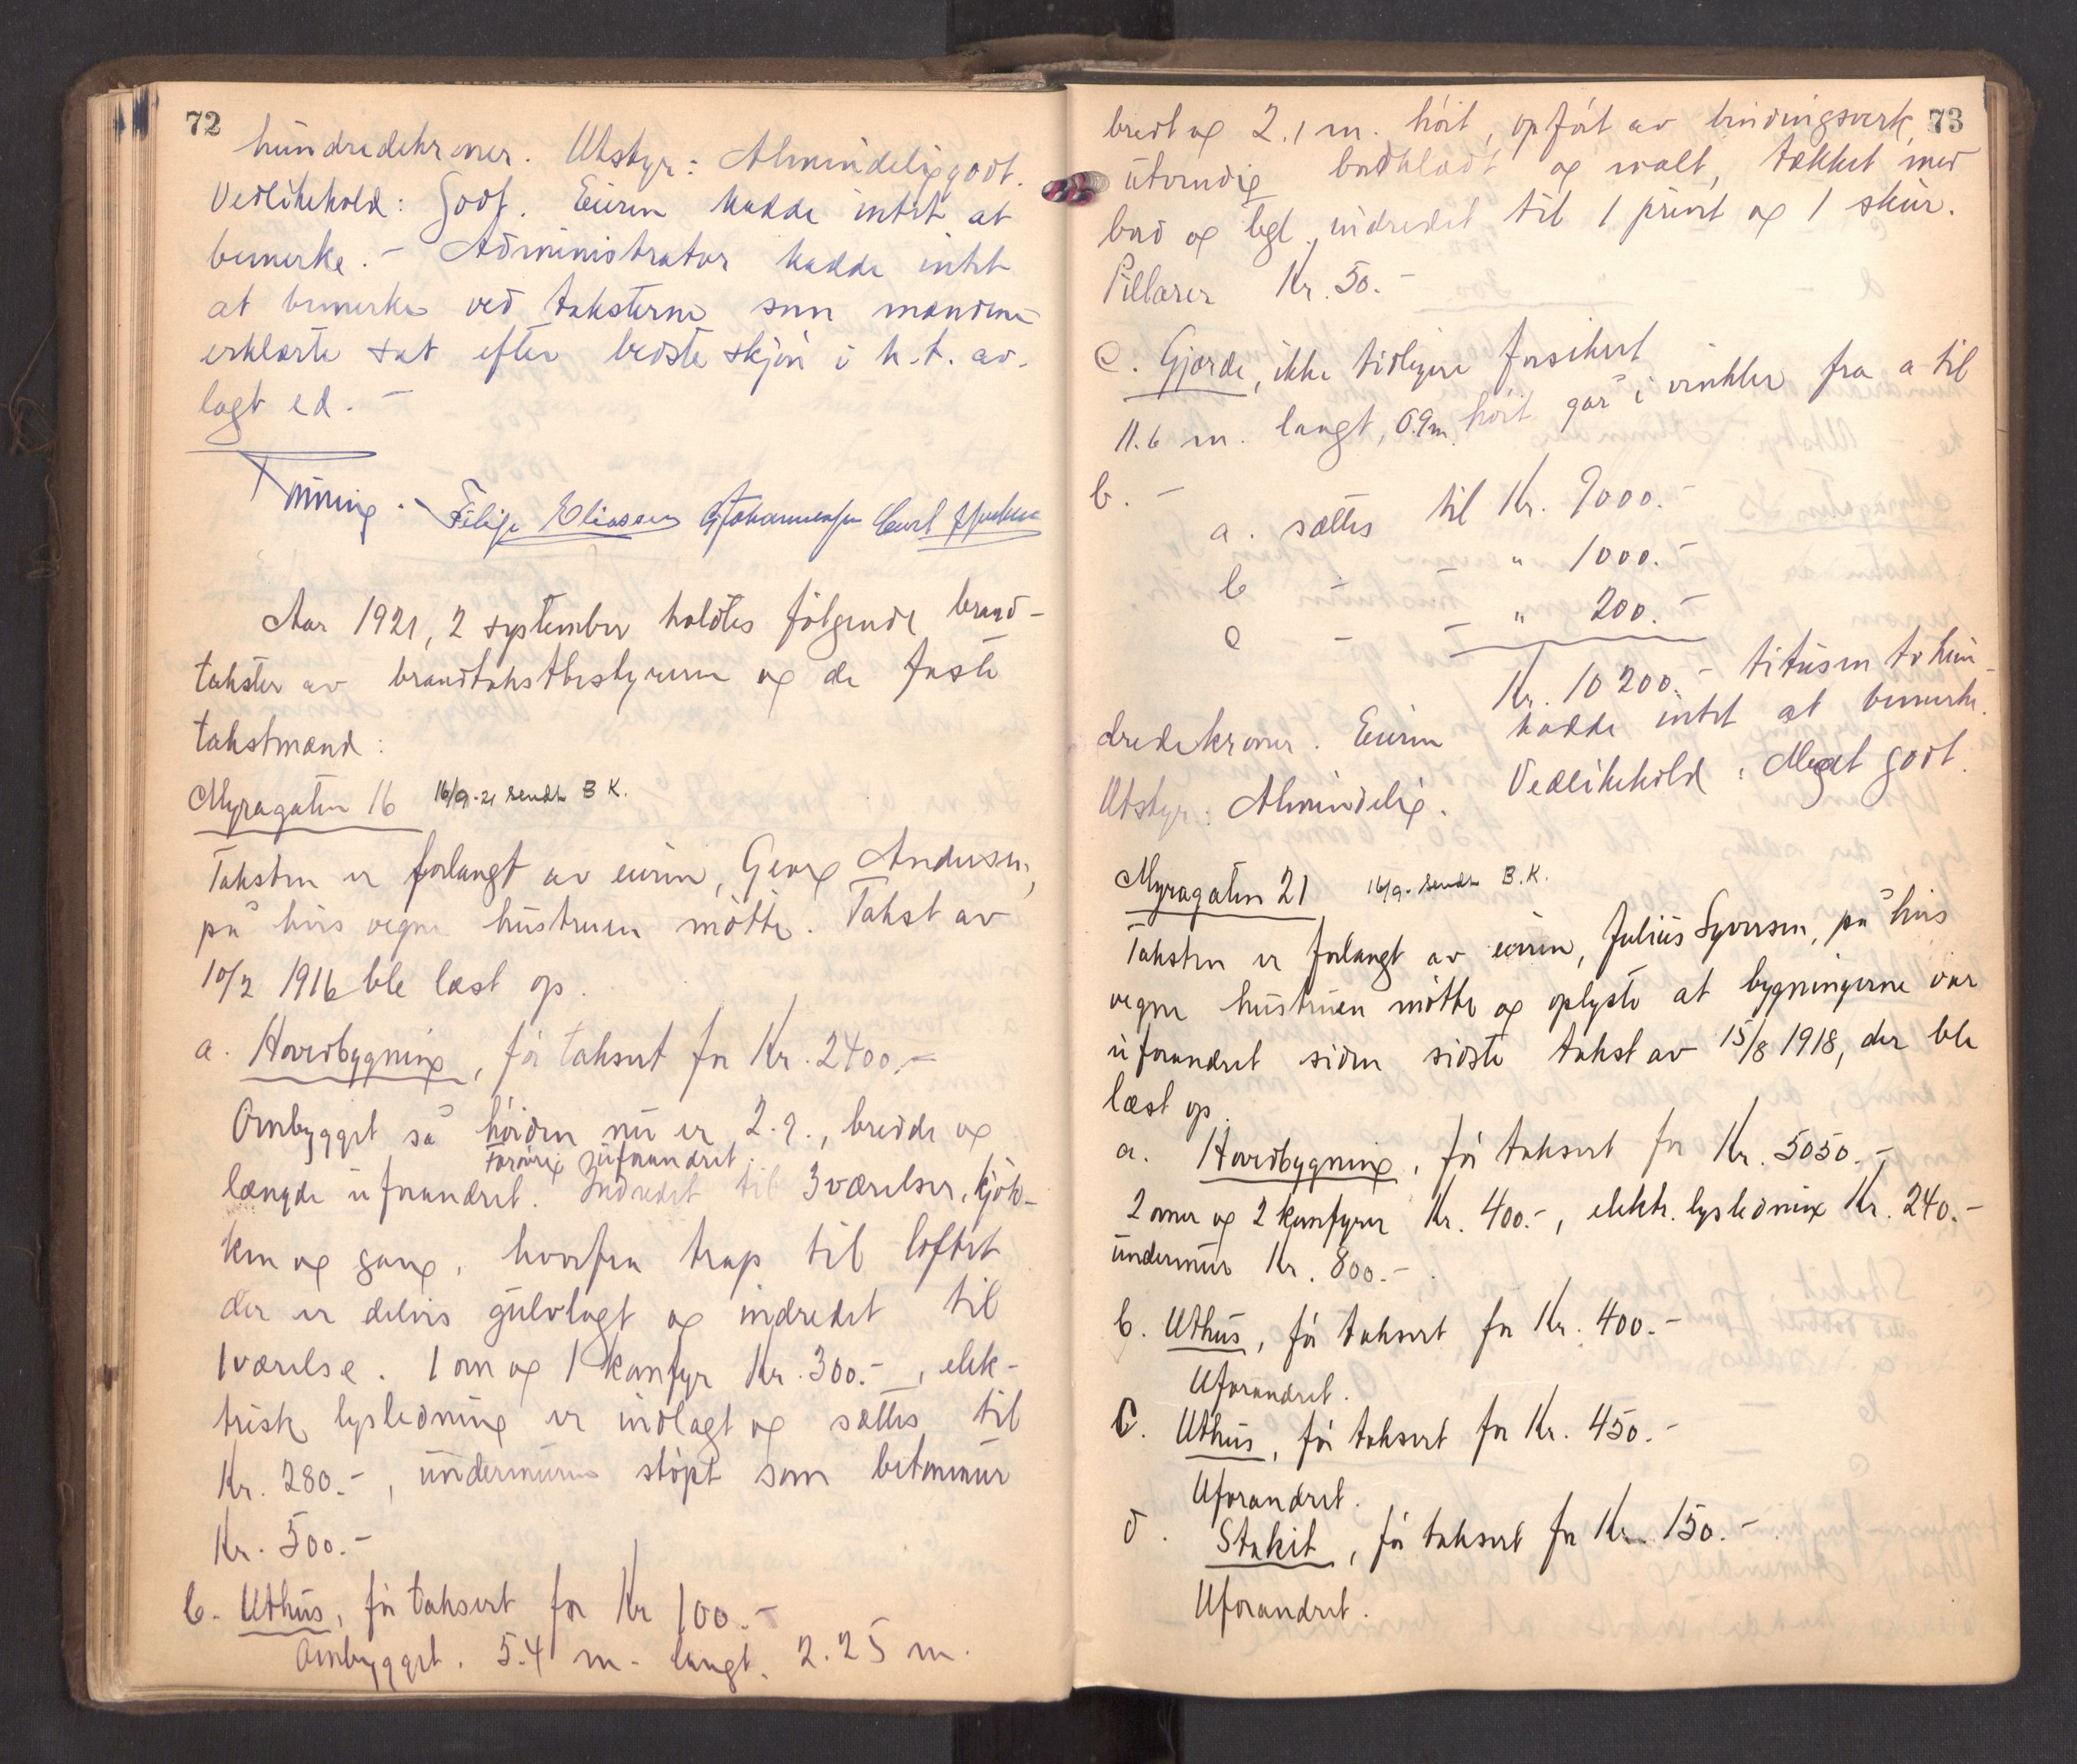 72
hundredekroner. Utstyr: Almindelig godt.
Vedlikehold: Godt. Eieren hadde intet at
bemerke. - Administrator hadde intet
at bemerke ved taksterne som mændene
erklærte sat efter bedste skjøn i h.t. av-
lagt ed. -
Filip Eliassen G Johannessen Carl
Aar 1921, 2 september holdtes følgende brand-
takster av brandtakstbestyreren og de faste
takstmænd:
Myragaten 16 16/9-21 sendt B K.
Taksten er forlangt av eieren, Georg Andersen,
på hvis vegne hustruen møtte. Takst av
10/2 1916 ble læst op.
a. Hovedbygning, før taksert for Kr. 2400.-
Ombygget så høiden nu er 2.9., bredde og
forøvrig uforandret.
længde uforandret. Indredet til 3 værelser, kjøk-
ken og gang, hvorfra trap til loftet
der er delvis gulvlagt og indredet til
1 værelse. 1 ovn og 1 komfyr Kr. 300.-, elek-
trisk lysledning er indlagt og sættes til
Kr. 280.-, undermuren støpt som betonmur
Kr. 500.-
b. Uthus, før taksert for Kr 100.-
Ombygget. 5.4 m. langt. 2.25 m.
73
bredt og 2.1 m. høit, opført av bindingsverk,
utvendig bordklædt og malt, tækket med
bord og tegl, indredet til 1 privet og 1 skur.
Pillarer Kr. 50.-
c. Gjærde, ikke tidligere forsikret
11.6 m. langt, 0.9 m. høit går i vinkler fra a til
b. -
a. sættes til Kr. 9000.-
b - - " 1000.-
c - - " 200.-
Kr. 10200.- titusen tohun-
dredekroner. Eieren hadde intet at bemerke.
Utstyr: Almindelig. Vedlikehold: Meget godt.
Myragaten 21 16/9. sendt B.K.
Taksten er forlangt av eieren, Julius Syversen, på hvis
vegne hustruen møtte og oplyste at bygningerne var
uforandret siden sidste takst av 15/8 1918, der ble
læst op.
a. Hovedbygning, før taksert for Kr. 5050.-
2 ovner og 2 komfyrer Kr. 400.-, elektr. lysledning Kr. 240.-
undermur Kr. 800.-
b. Uthus, før taksert for Kr. 400.-
Uforandret.
c. Uthus, før taksert for Kr. 450.-
Uforandret.
d. Stakit, før taksert for Kr. 150.-
Uforandret.